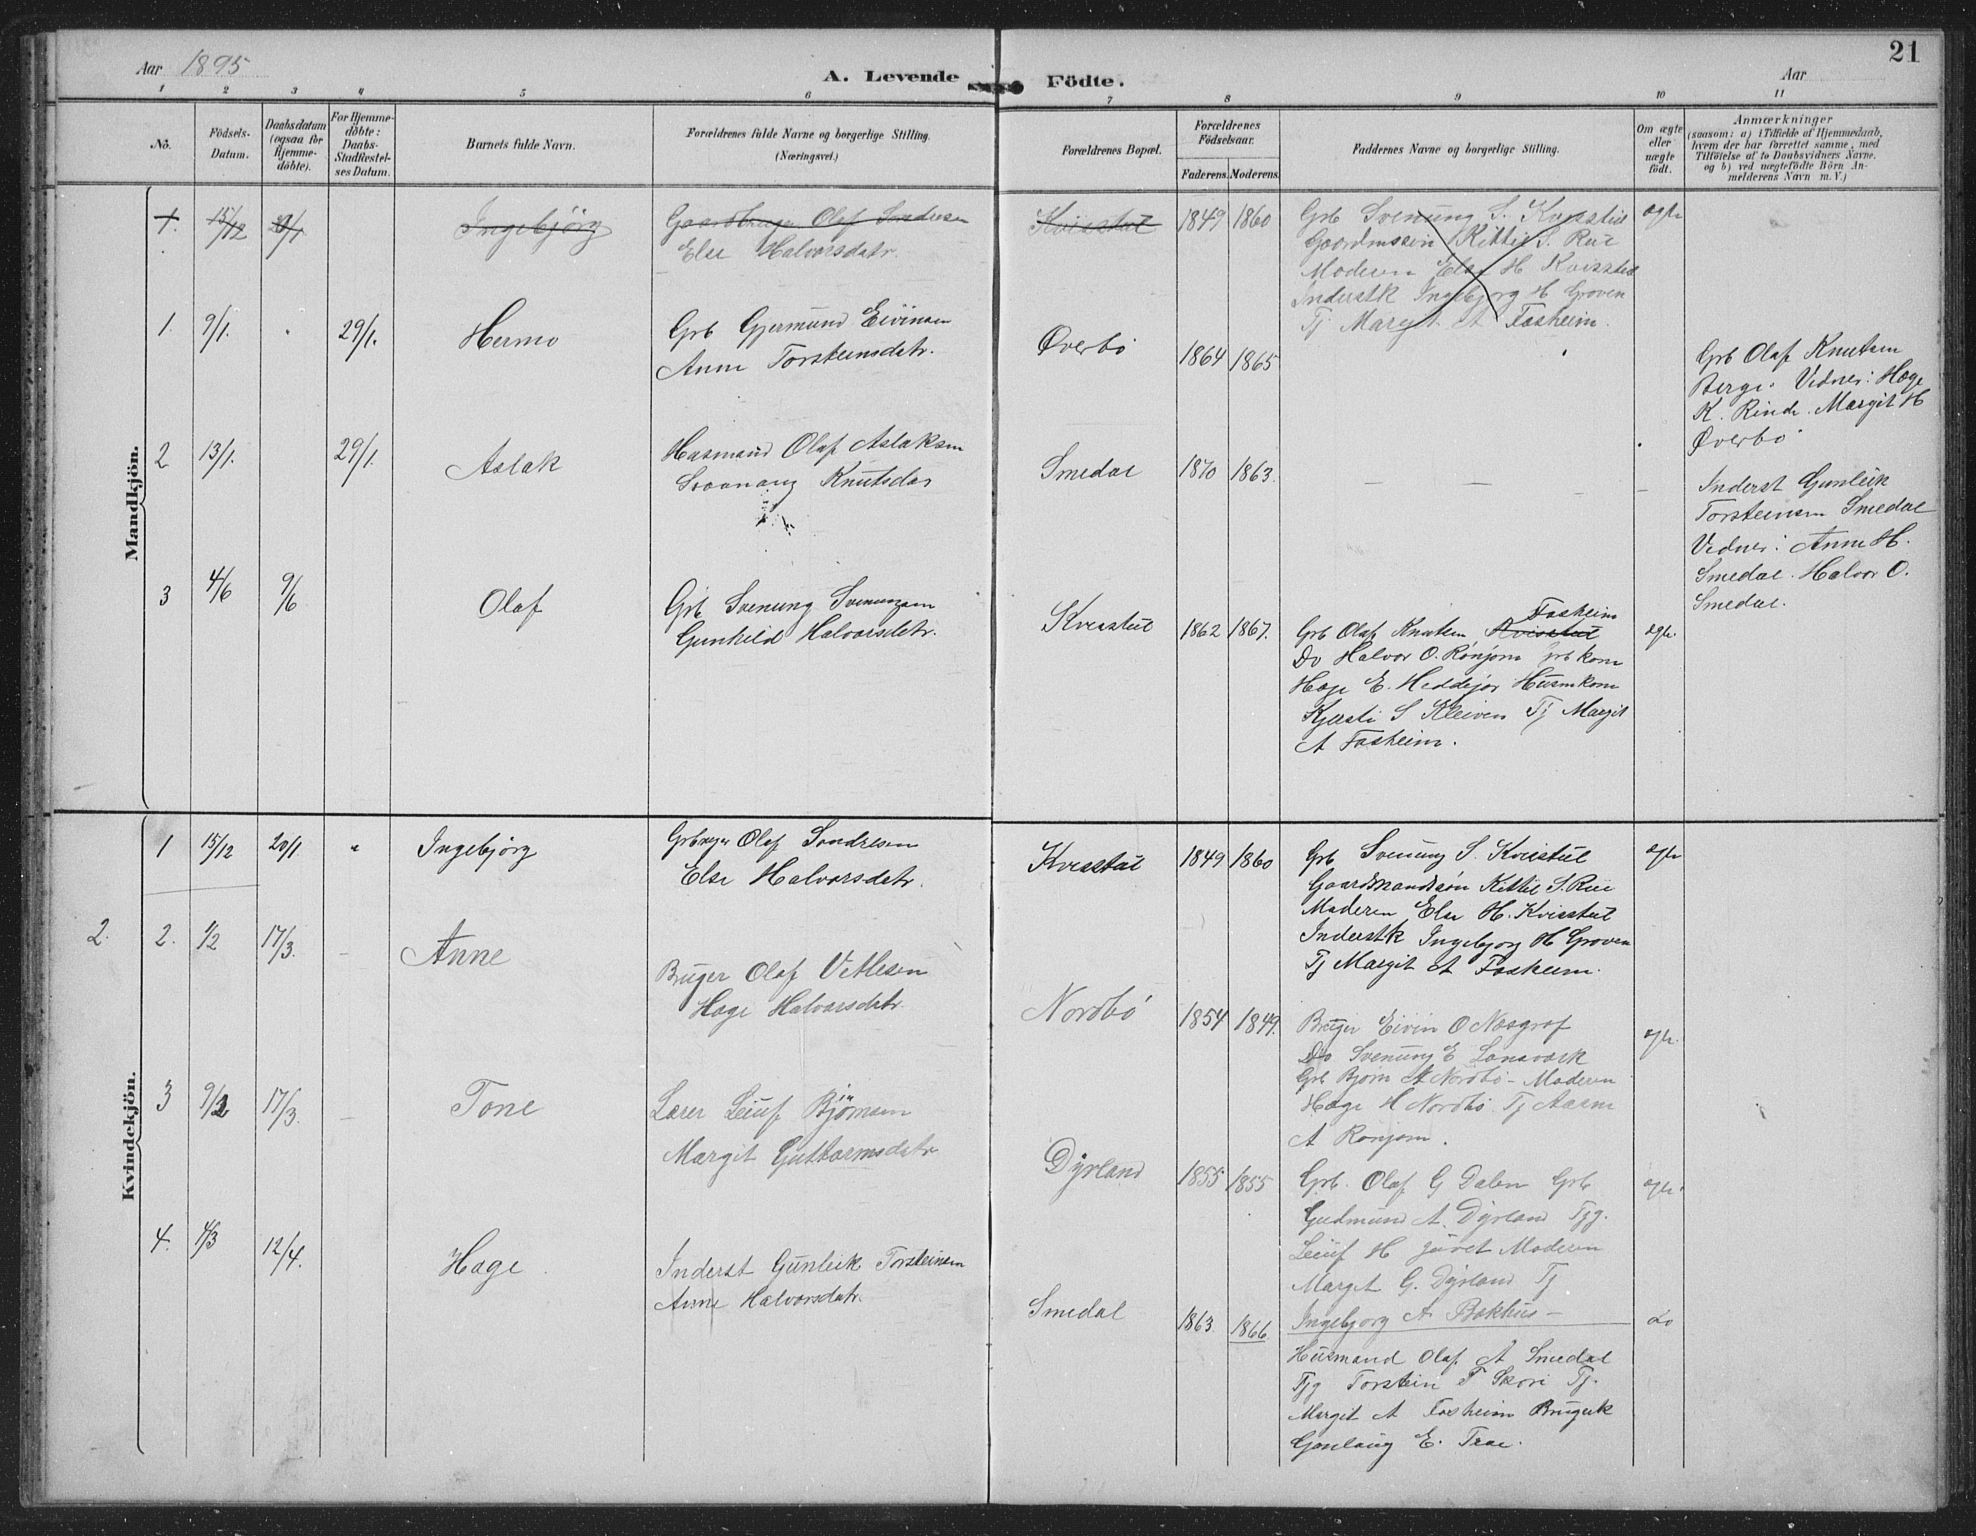 Aar 1895
A. Levende Födte.
Aar
21
1 2 3 4 5 6 7 8 9 10 11
No.
Födsels-
Datum.
Daabsdatum
(ogsaa for
Hjemme-
döbte).
For Hjemme-
döbte:
Daabs-
Stadfæstel-
ses Datum.
Barnets fulde Navn.
Forældrenes fulde Navne og borgerlige Stilling.
(Næringsvei.)
Forældrenes Bopæl.
Forældrenes
Födselsaar.
Faderens. Moderens.
Faddernes Navne og borgerlige Stilling.
Om ægte
eller
uægte
födt.
Anmærkninger
(saasom: a) i Tilfælde af Hjemmedaab,
hvem der har forrettet samme, med
Tilföielse af to Daabsvidners Navne,
og b) ved uægtefödte Börn An-
melderens Navn m. V.)
Mandkjön.
1. 15/12 Ingebjörg
Gaardbruger Olaf Sondresen
Else Halvorsdatr.
Kvisstul 1849 1860
Grb Svenung S. Kvisstul
Kittil S. Rue
Moderen Else H Kvisstul
Inderstk Ingebjorg H Groven
Tj Margit A Fosheim.
ægte
1. 9/1. 29/1. Hermo
Grb Gjermund Eivinsen
Anne Torsteinsdatr.
Øverbö 1864 1865
Grb Olaf Knutsen
Berge. Vidner: Hæge
K. Rinde. Margit H
Øverbö
2 13/1. 29/1. Aslak
Husmand Olaf Aslaksen
Svaanaug Knutsdar
Smedal 1870 1863.
Inderst Gunleik
Torsteinsen Smedal
Vidner: Anne H.
Smedal. Halvor O.
Smedal.
3 4/6 9/6 Olaf
Grb Svenung Svenungsen
Gunhild Halvorsdatr.
Kvisstul 1862 1867.
Fosheim
Grb Olaf Knutsen Kvisstul
Do Halvor O. Ronjom Grb kone
Hæge E. Heddejor Husmkone
Kjersti S Kleiven Tj Margit
A Fosheim.
ægte.
Kvindekjön.
1 15/12 20/1 " Ingebjörg
Olaf Sondresen
Else Halvorsdatr.
Kvisstul 1849 1860
Grb Svenung S. Kvisstul
Gaardmandssön Kittil S. Rue
Moderen Else H. Kvisstul
Inderstk Ingebjorg H Groven
Tj Margit A Fosheim.
ægte
2. 2. 1/2 17/3. - Anne
Bruger Olaf Vetlesen
Hæge Halvorsdatr.
Nordbö 1854 1849.
Bruger Eivin O Næsgraf
Do Svenung E Lonsværk
Grb Bjorn A Nordbö - Moderen
Hæge H Nordbö Tj Aasne
A Ronjom.
ægte.
3 9/2 17/3. - Tone
Lærer Leiuf Björnsen
Margit Guttormsdatr
Dyrland 1855 1855
Grb. Olaf G Dalen Grb
Gudmund A. Dyrland Tjg.
Leiuf H Juvet Moderen
Margit G. Dyrland Tj
Ingebjorg A Bakhus -
ægte.
4. 4/3 12/4. Hæge
Inderst Gunleik Torsteinsen
Anne Halvorsdatr.
Smedal 1863. 1866
Husmand Olaf A Smedal
Tjg Torstein T Skori Tj.
Margit A Fosheim Brugerk
Gunlaug E. Træe.
Do